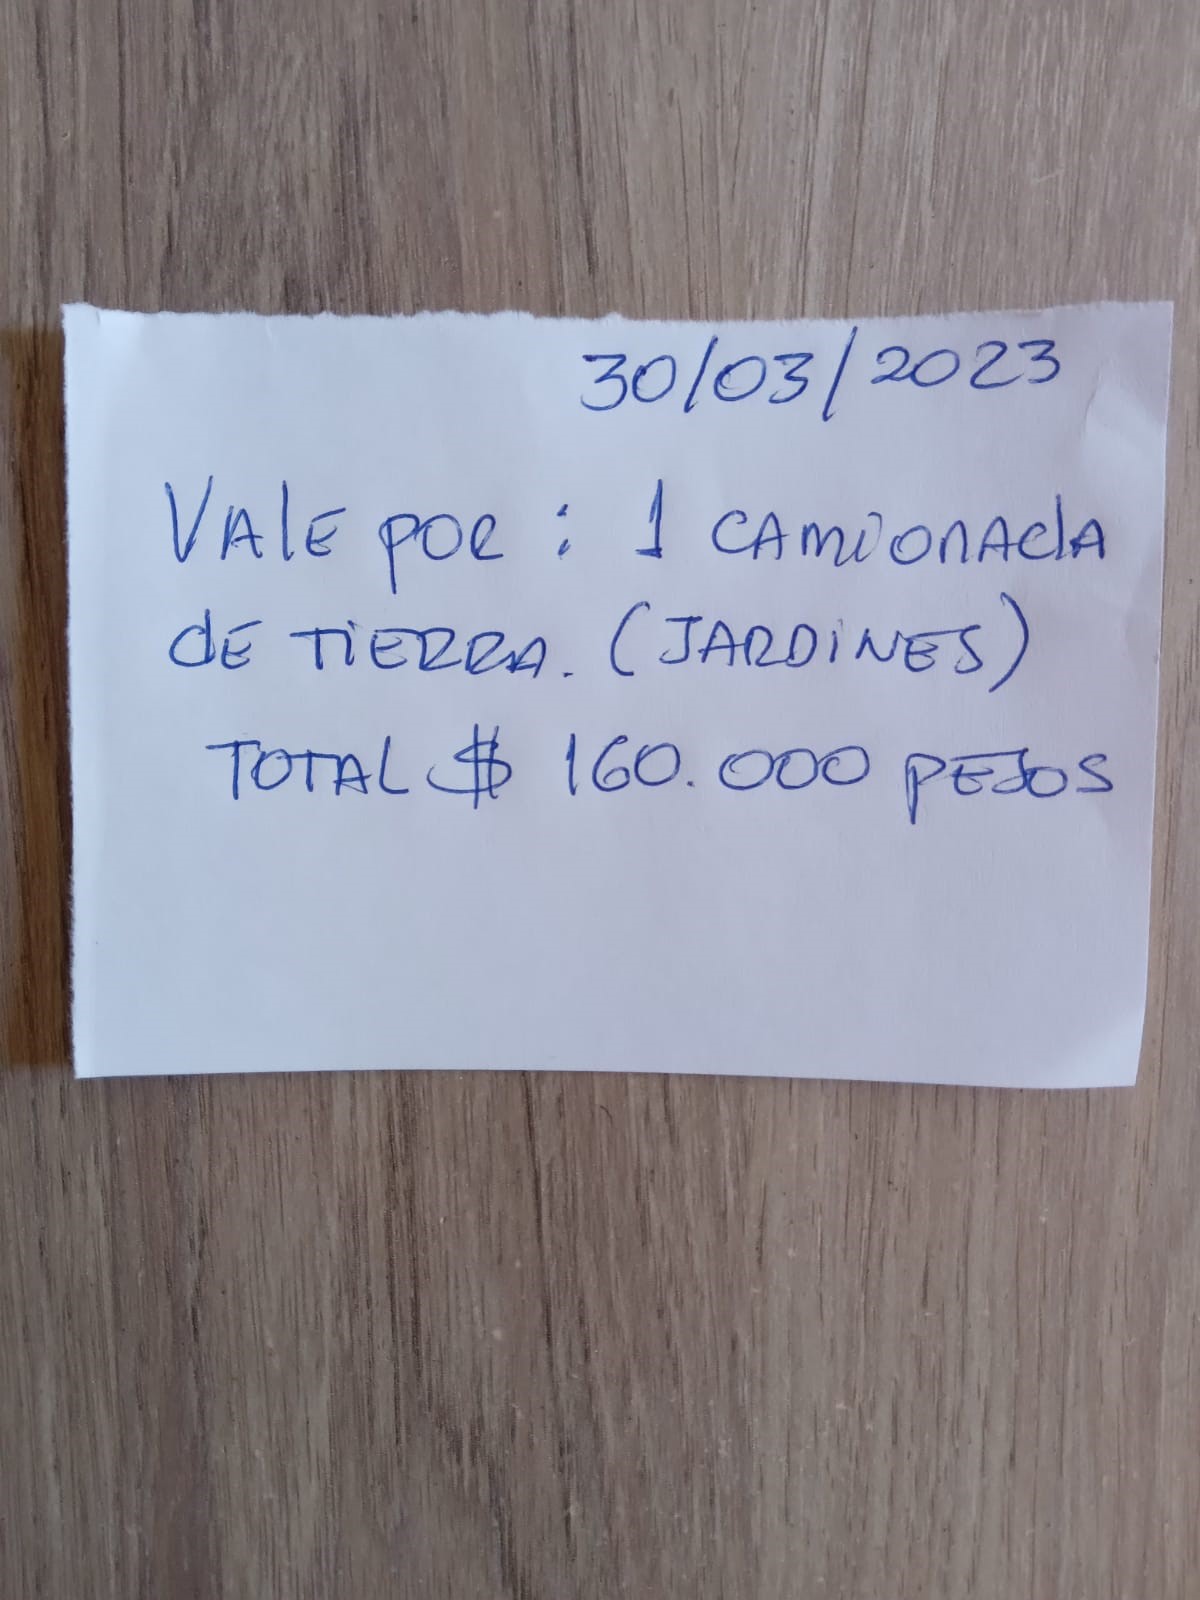 30/03/2023
Vale por : 1 camionada
de tierra. (Jardines)
Total $ 160.000 pesos